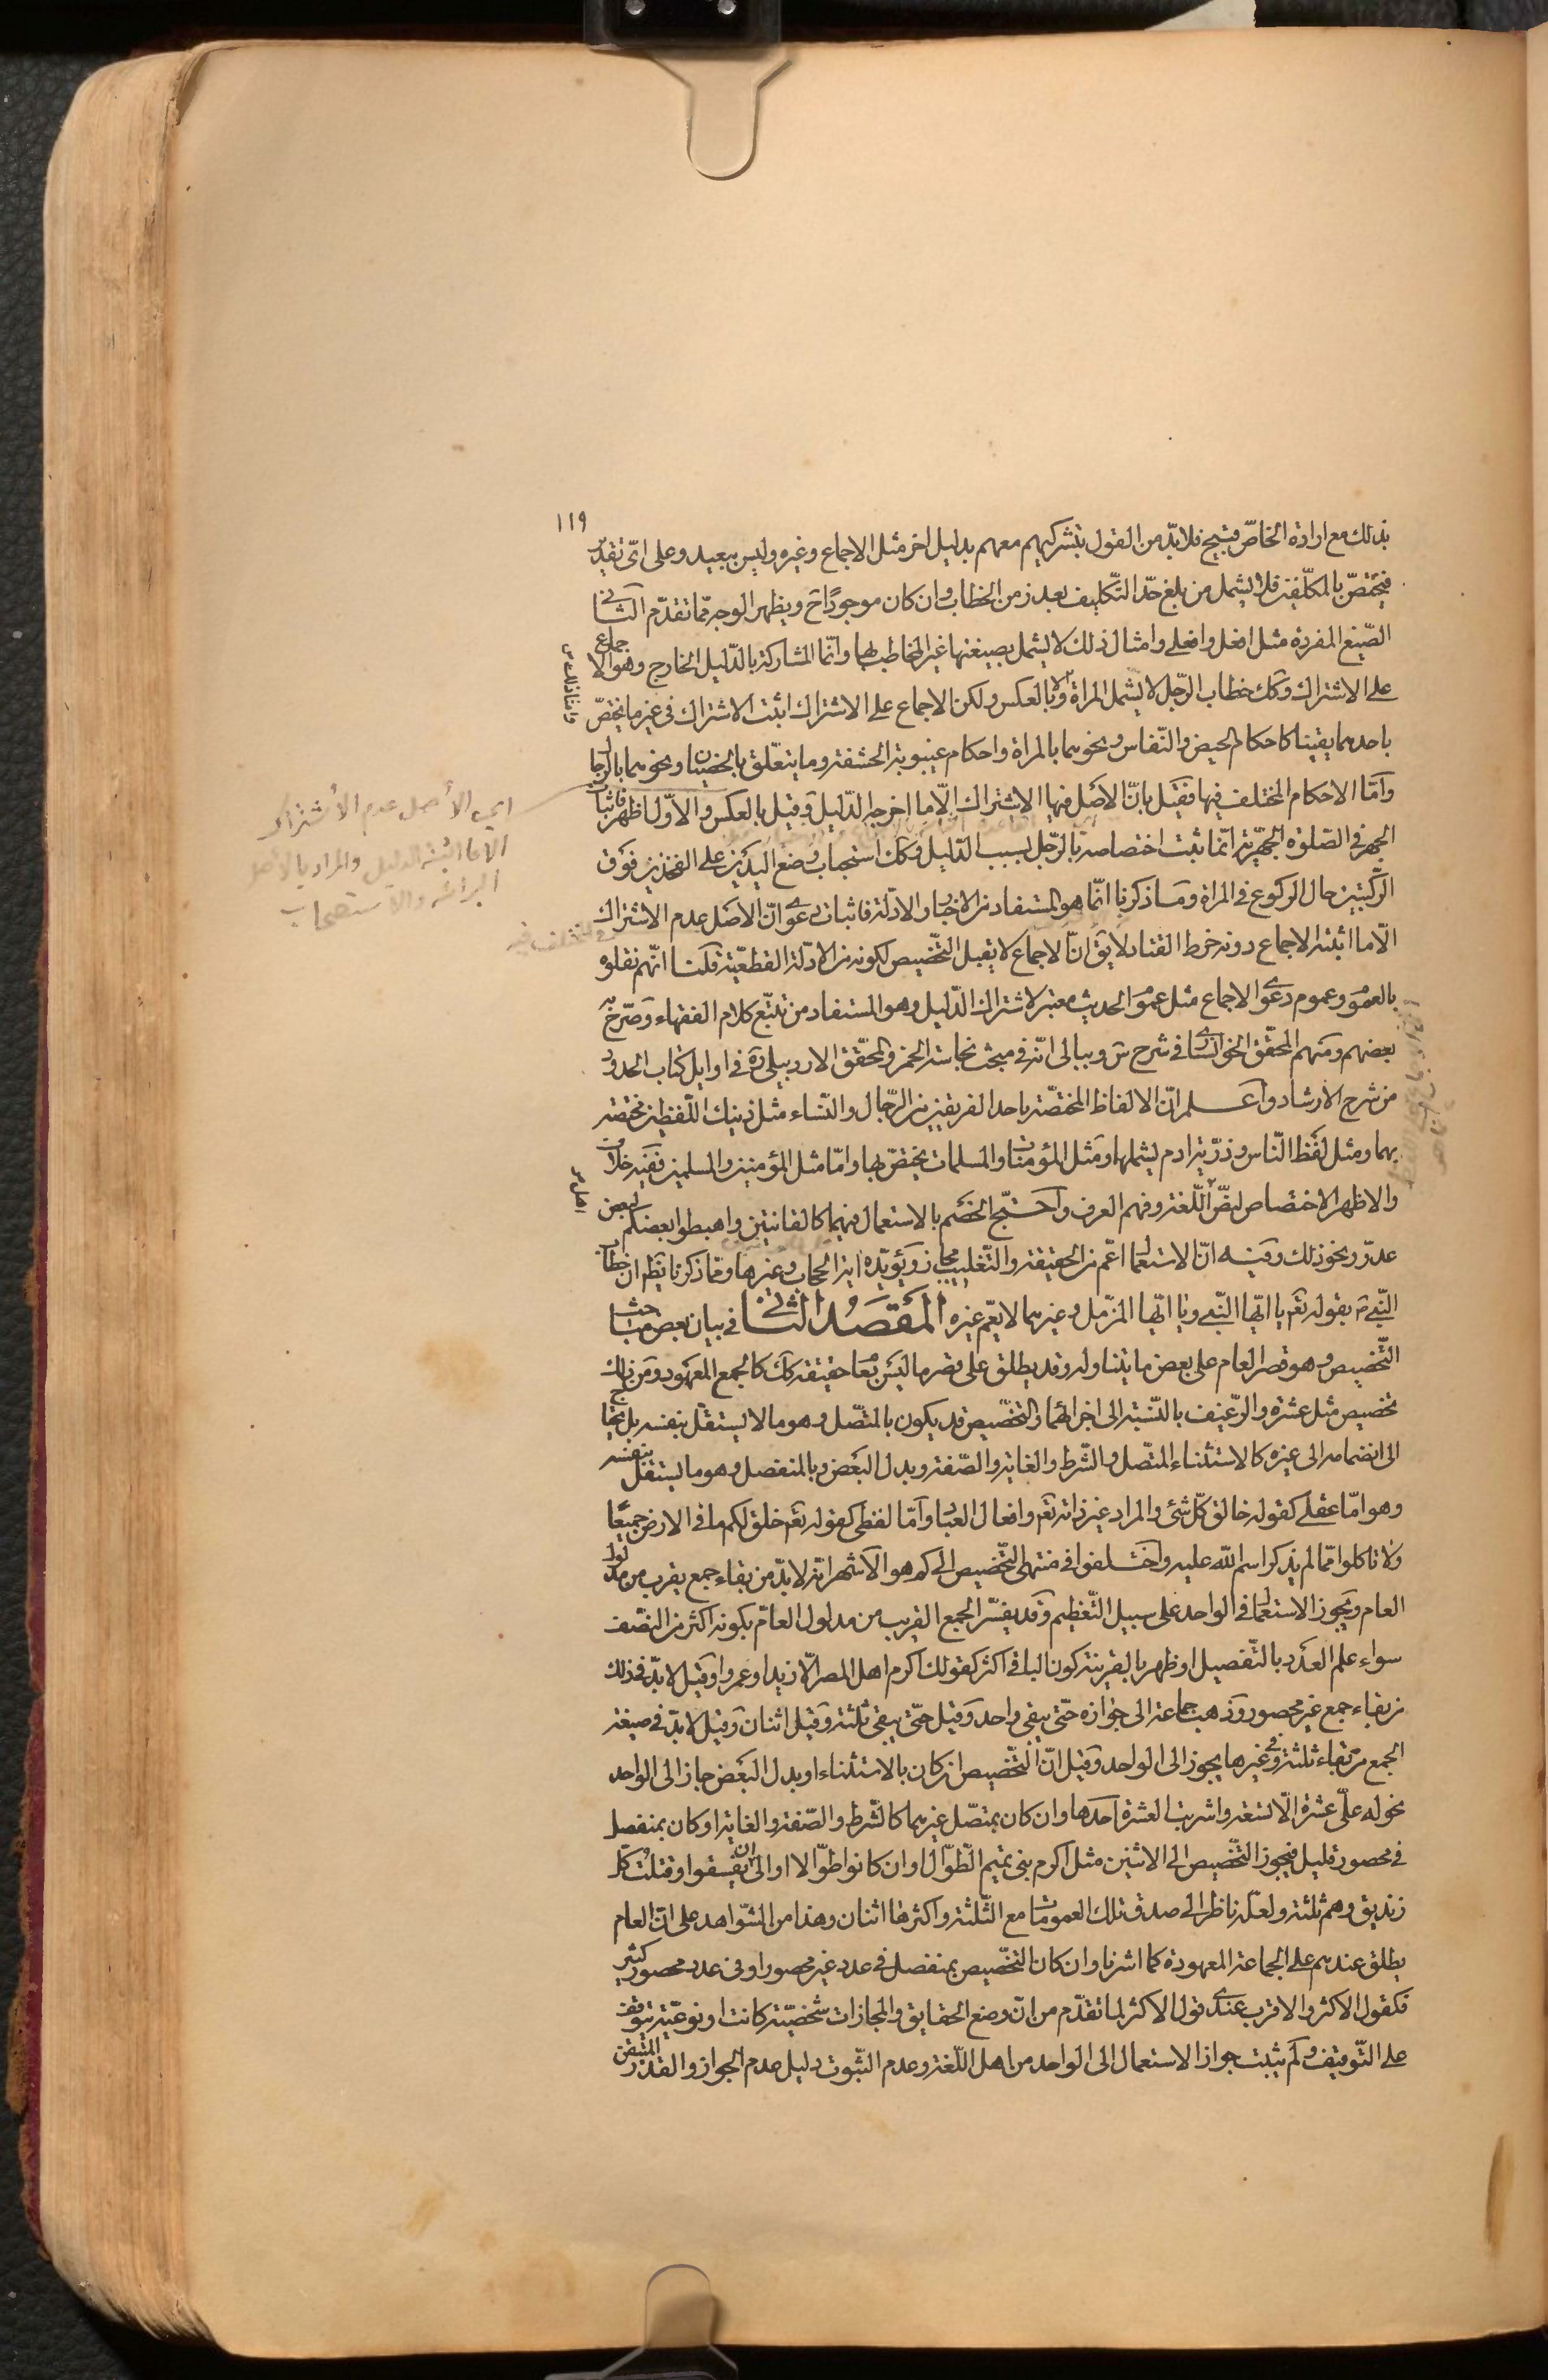 ١١٩
بذلك مع ارادة الخاصّ قبيح فلا بدّ من القول بتشركيهم معهم بدليل اخر مثل الاجماع وغيره وليس ببعيد وعلى اىّ تقدير
فيختصّ بالمكلّفين فلا يشمل من بلغ حدّ التّكليف بعد زمن الخطاب وان كان موجودًا ح ويظهر الوجه ممّا تقدّم الثّانى
الصّيغ المفردة مثل افعل وافعلى وامثال ذلك لا يشمل بصيغتها غير المخاطب بها وانّما المشاركة بالدّليل الخارج وهو الاجماع
على الاشتراك وكك خطاب الرّجل لا يشمل المراة ولا بالعكس ولكن الاجماع على الاشتراك اثبت الاشتراك فى غير ما يختصّ
باحدهما يقينا كاحكام الحيض والنّفاس ونحوهما بالمراة واحكام غيبوبة الحشفة وما يتعلّق بالخصيان ونحوهما بالرجال
وامّا الاحكام المختلف فيها فقيل بانّ الاصل فيها الاشتراك الّا ما اخرجه الدّليل وقيل بالعكس والاوّل اظهر فاثبات
الجهر فى الصّلوة الجهريّة انّما ثبت اختصاصه بالرّجل بسبب الدّليل وكك استحباب وضع اليدين على الفخذين فوق
الرّكبتين حال الركوع فى المراة وما ذكرنا انّما هو المستفاد من الاخبار والادلّة فاثبات دعوى انّ الاصل عدم الاشتراك
الّا ما اثبته الاجماع دونه خرط القتاد لا يق انّ الاجماع لا يقبل التّخصيص لكونه من الادلّة القطعيّة قلنا انّهم نقلوه
بالعموم وعموم دعوى الاجماع مثل عموم الحديث معتبر لاشتراك الدّليل وهو المستفاد من تتبّع كلام الفقهاء وصرّح به
بعضهم ومنهم المحقّق الخوانسارى فى شرح س وببالى انّه فى مبحث نجاسة الخمر والمحقّق الاردبيلى ره فى اوايل كتاب الحدود
من شرح الارشاد واعلم انّ الالفاظ المختصّة باحد الفريقين من الرّجال والنّساء مثل ذينك اللّفظين مختصّة
بهما ومثل لفظ النّاس وذرّية ادم يشملهما ومثل المؤمنات والمسلمات يختصّ بها وامّا مثل المؤمنين والمسلمين ففيه خلاف
والاظهر الاختصاص لنصّ اهل اللّغة وفهم العرف واحتجّ الخصم بالاستعمال فيهما كالقانتين واهبطوا بعضكم لبعض
عدوّ ونحو ذلك وفيه انّ الاستعمال اعمّ من الحقيقة والتّغليب مجاز ويؤيّده اية الحجاب وغيرها وممّا ذكرنا يظهر ان خطاب
النّبى ص بقوله تعم يا ايّها النّبى ويا ايّها المزّمل وغيرهما لا يعمّ غيره المقصد الثّانى فى بيان بعض مباحث
التّخصيص وهو قصر العام على بعض ما يتناوله وقد يطلق على قصر ما ليس بعام حقيقة كك كالجمع المعهود ومن ذلك
تخصيص مثل عشرة والرّغيف بالنّسبة الى اجزائهما والتخصّيص قد يكون بالمتّصل وهو ما لا يستقلّ بنفسه بل يحتاج
الى انضمامه الى غيره كالاستثناء المتّصل والشّرط والغاية والصّفة وبدل البعض وبالمنفصل وهو ما يستقلّ بنفسه
وهو امّا عقلى كقوله خالق كلّ شئ والمراد غير ذاته تعم وافعال العباد وامّا لفظى كقوله تعم خلق لكم ما فى الارض جميعًا
ولا تاكلوا ممّا لم يذكر اسم اللّه عليه واختلفوا فى منتهى التّخصيص الى كم هو الاشهر انّه لا بدّ من بقاء جمع يقرب من مدلول
العام ويجوز الاستعمال فى الواحد على سبيل التّعظيم وقد يفسّر الجمع القريب من مدلول العامّ بكونه اكثر من النّصف
سواء علم العدد بالتّفصيل او ظهر بالقرينة كون الباقى اكثر كقولك اكرم اهل المصر الّا زيدا وعمروا وقيل لا بدّ فى ذلك
من بقاء جمع غير محصور وذهب جماعة الى جوازه حتّى يبقى واحد وقيل حتّى يبقى ثلثة وقيل اثنان وقيل لا بدّ فى صيغة
الجمع من بقاء ثلثة وفى غيرها يجوز الى الواحد وقيل انّ التّخصيص ان كان بالاستثناء او بدل البعض جاز الى الواحد
نحو له علىّ عشرة الّا تسعة واشريت العشرة احدها وان كان بمتصّل غيرهما كالشّرط والصّفة والغاية او كان بمنفصل
فى محصور قليل فيجوز التّخصيص الى الاثنين مثل اكرم بنى تميم الطّوال او ان كانوا طوّالا او الى ان يفسقوا وقتلت كلّ
زنديق وهم ثلثة ولعلّه ناظر الى صدق تلك العمومات مع الثّلثة واكثرها اثنان وهذا من الشّواهد على انّ العام
يطلق عندهم على الجماعة المعهودة كما اشرنا وان كان التخّصيص بمنفصل فى عدد غير محصور او فى عدد محصور كثير
فكقول الاكثر والاقرب عندى قول الاكثر لما تقدّم من انّ وضع الحقايق والمجازات شخصيّة كانت او نوعيّة يتوقف
على التّوقيف ولم يثبت جواز الاستعمال الى الواحد من اهل اللّغة وعدم الثّبوت دليل عدم الجواز والقدر المتيقن
اي الأصل عدم الأشتراك
الا ما اثبته الدليل والمراد بالأصل
البرائة والأستصحاب